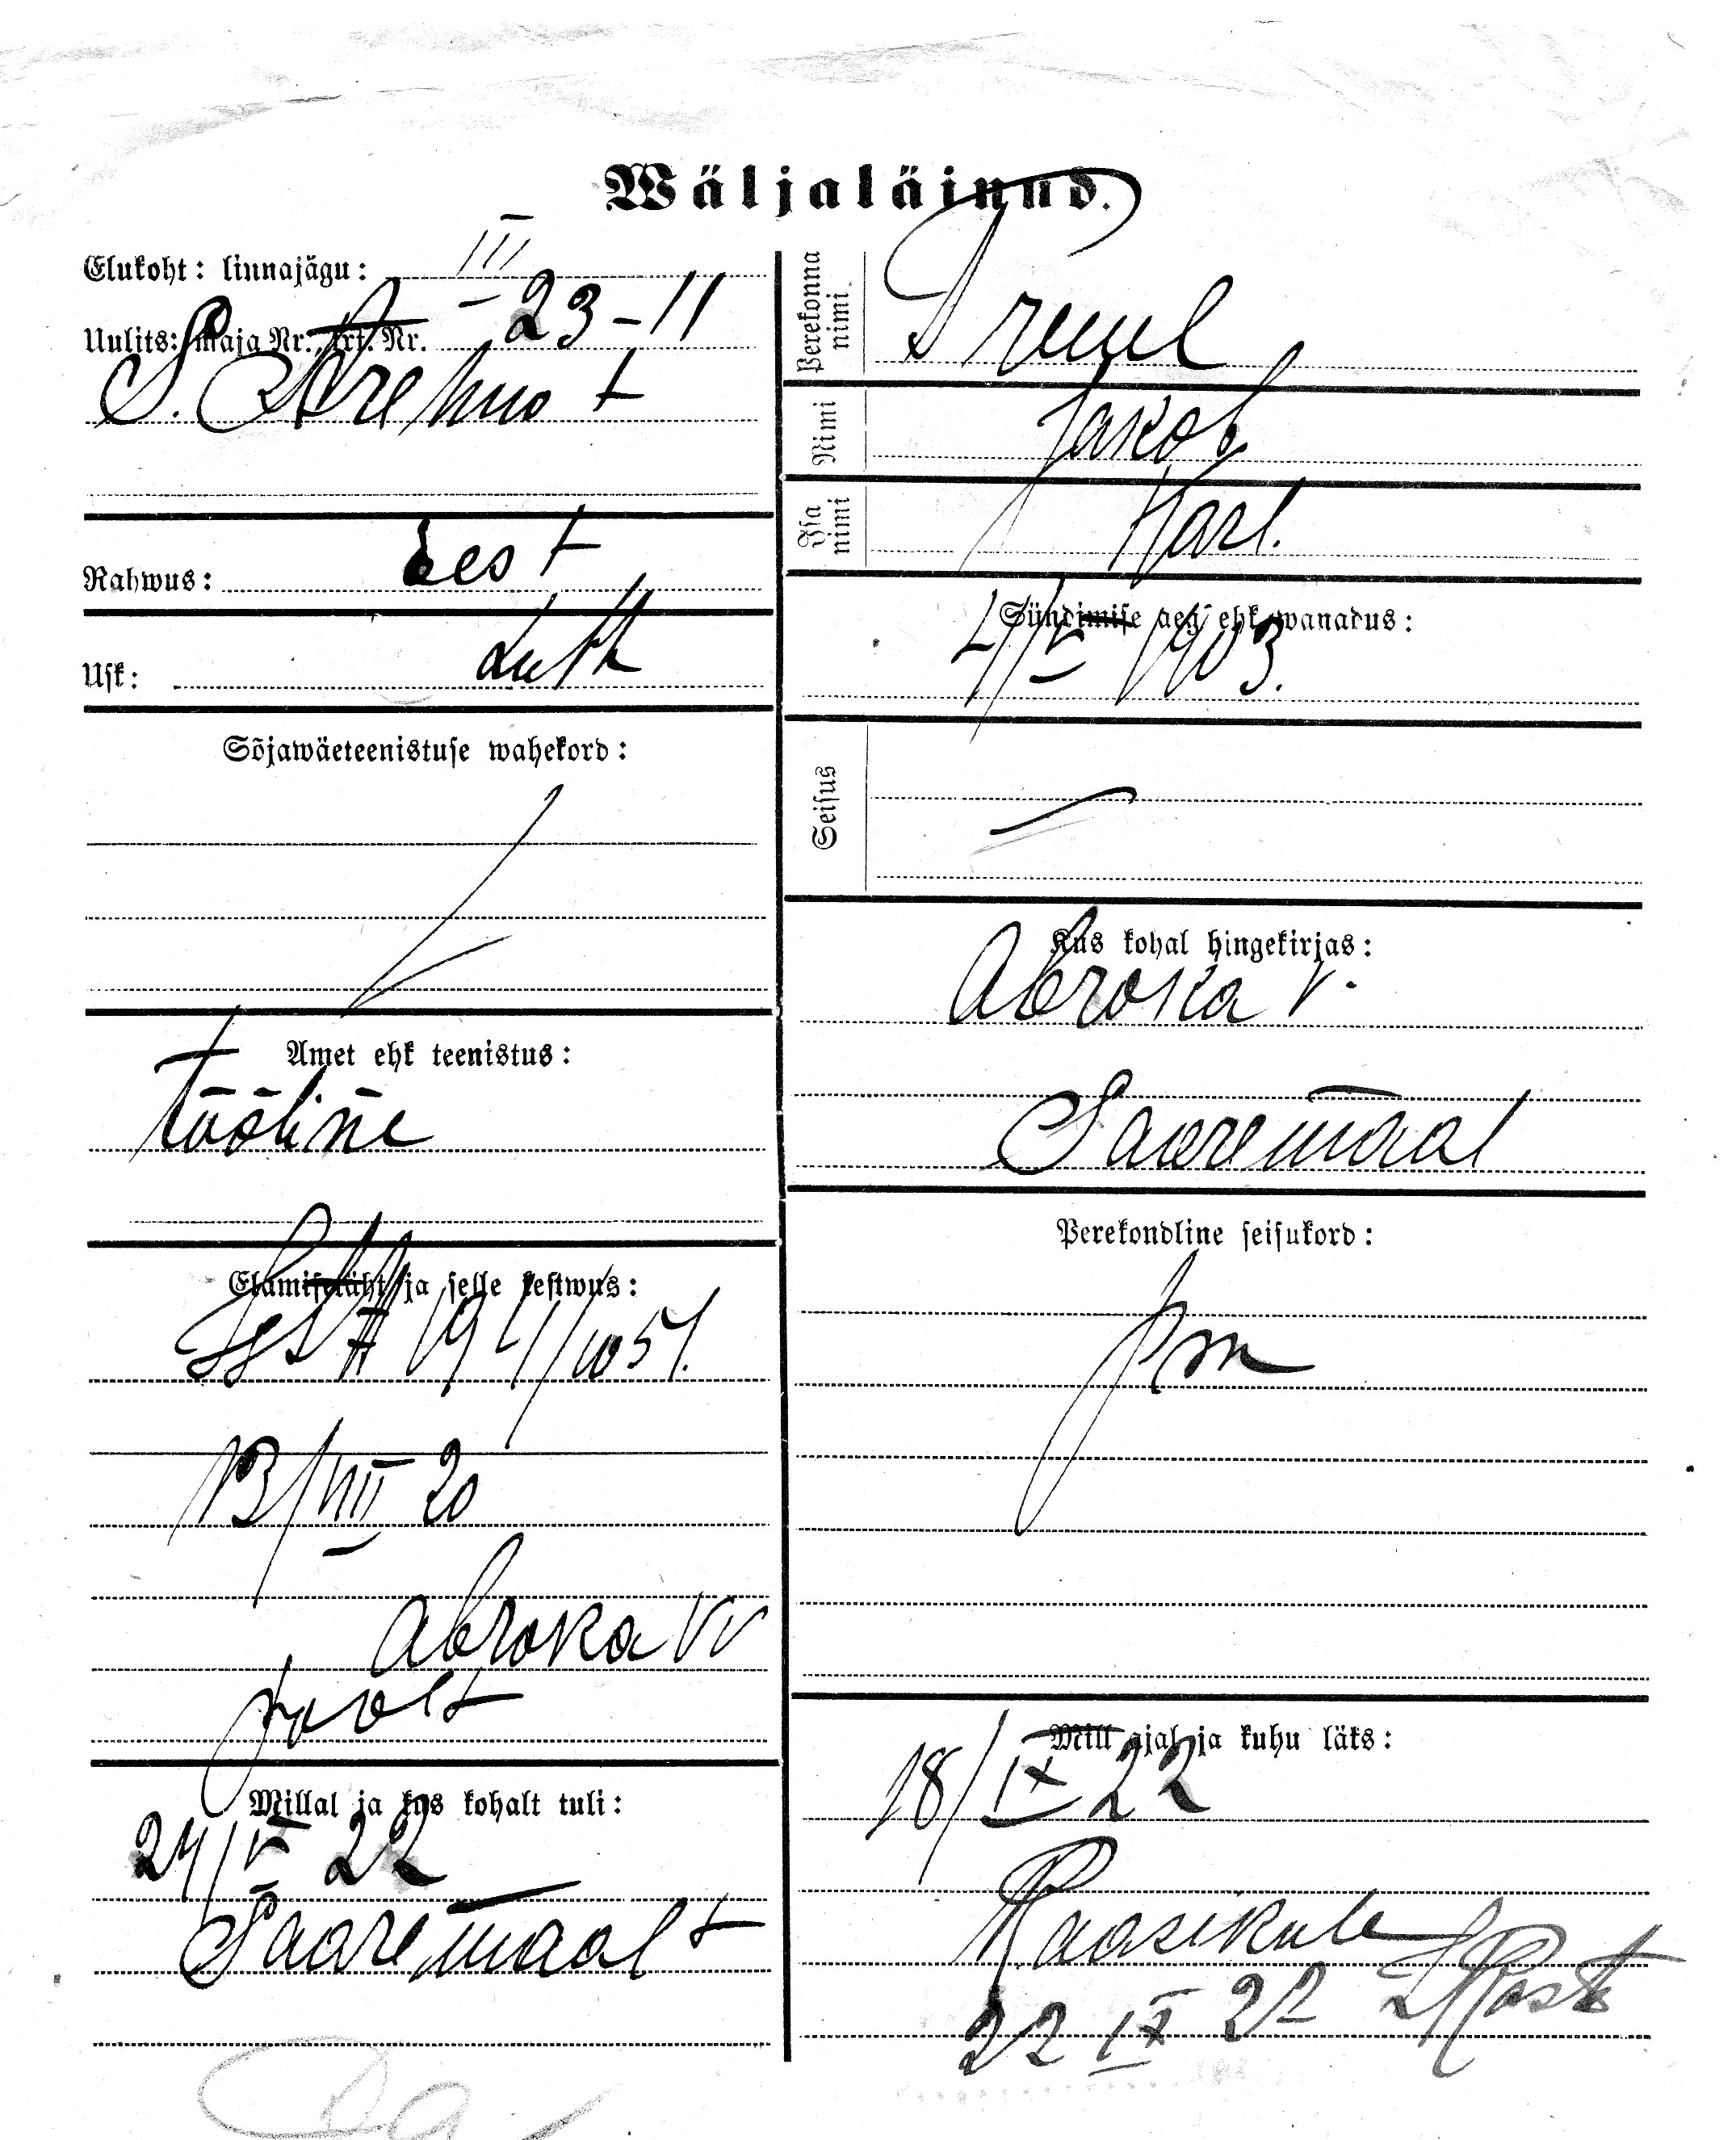 Wäljaläinud.
Elukoht: linnajägu: III
Uulits: maja Nr., krt. Nr. 23-11
S.
Rahwus: Eest
Usk: Luth
Sõjawäeteenistuse wahekord:
Amet ehk teenistus:
Tööline
Elamisetäht ja selle kestwus:
13/VIII 20
Abroka vv
poolt
Millal ja kus kohalt tuli:
24/V 22
Saaremaalt
Perekonna nimi Preuel
Nimi Jakob
Isa nimi Karl.
Sündimise aeg ehk wanadus:
4/V 1903.
Seisus
Kus kohal hingekirjas:
Abroka v.
Saaremaal
Perekondline seisukord:
pm
Mill ajal ja kuhu läks:
18/IX 22
Raasikule
22 IX 22